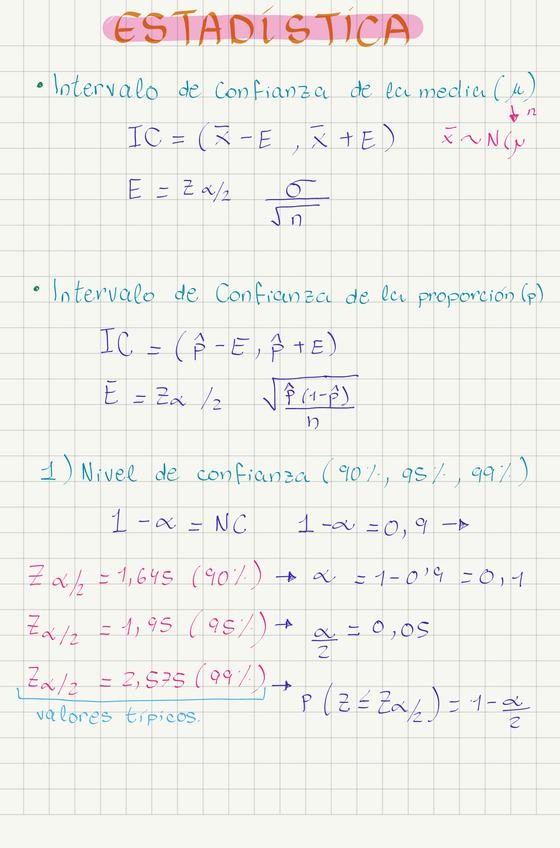 ESTADÍSTICA
• Intervalo de Confianza de la media (μ)
IC = (x̄ - E , x̄ + E) x̄ ~ N(μ
n
E = Z α/2 σ/√n
• Intervalo de Confianza de la proporción (p)
IC = (p̂ - E, p̂ + E)
E = Zα/2 √(p̂(1-p̂)/n)
1) Nivel de confianza (90%, 95%, 99%)
1-α = NC 1-α = 0,9 →
Zα/2 = 1,645 (90%) → α = 1-0'9 = 0,1
Zα/2 = 1,95 (95%) → α/2 = 0,05
Zα/2 = 2,575 (99%) → P(Z ≤ Zα/2) = 1-α/2
valores típicos.